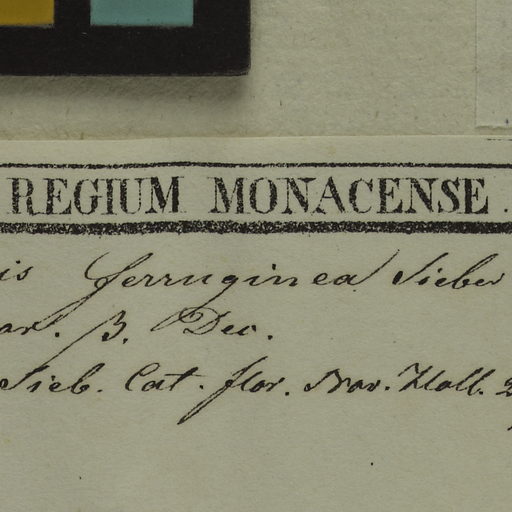 REGIUM MONACENSE.
is ferruginea Sieber
ar. β. Dec.
Sieb. Cat. flor. Nov. Holl.